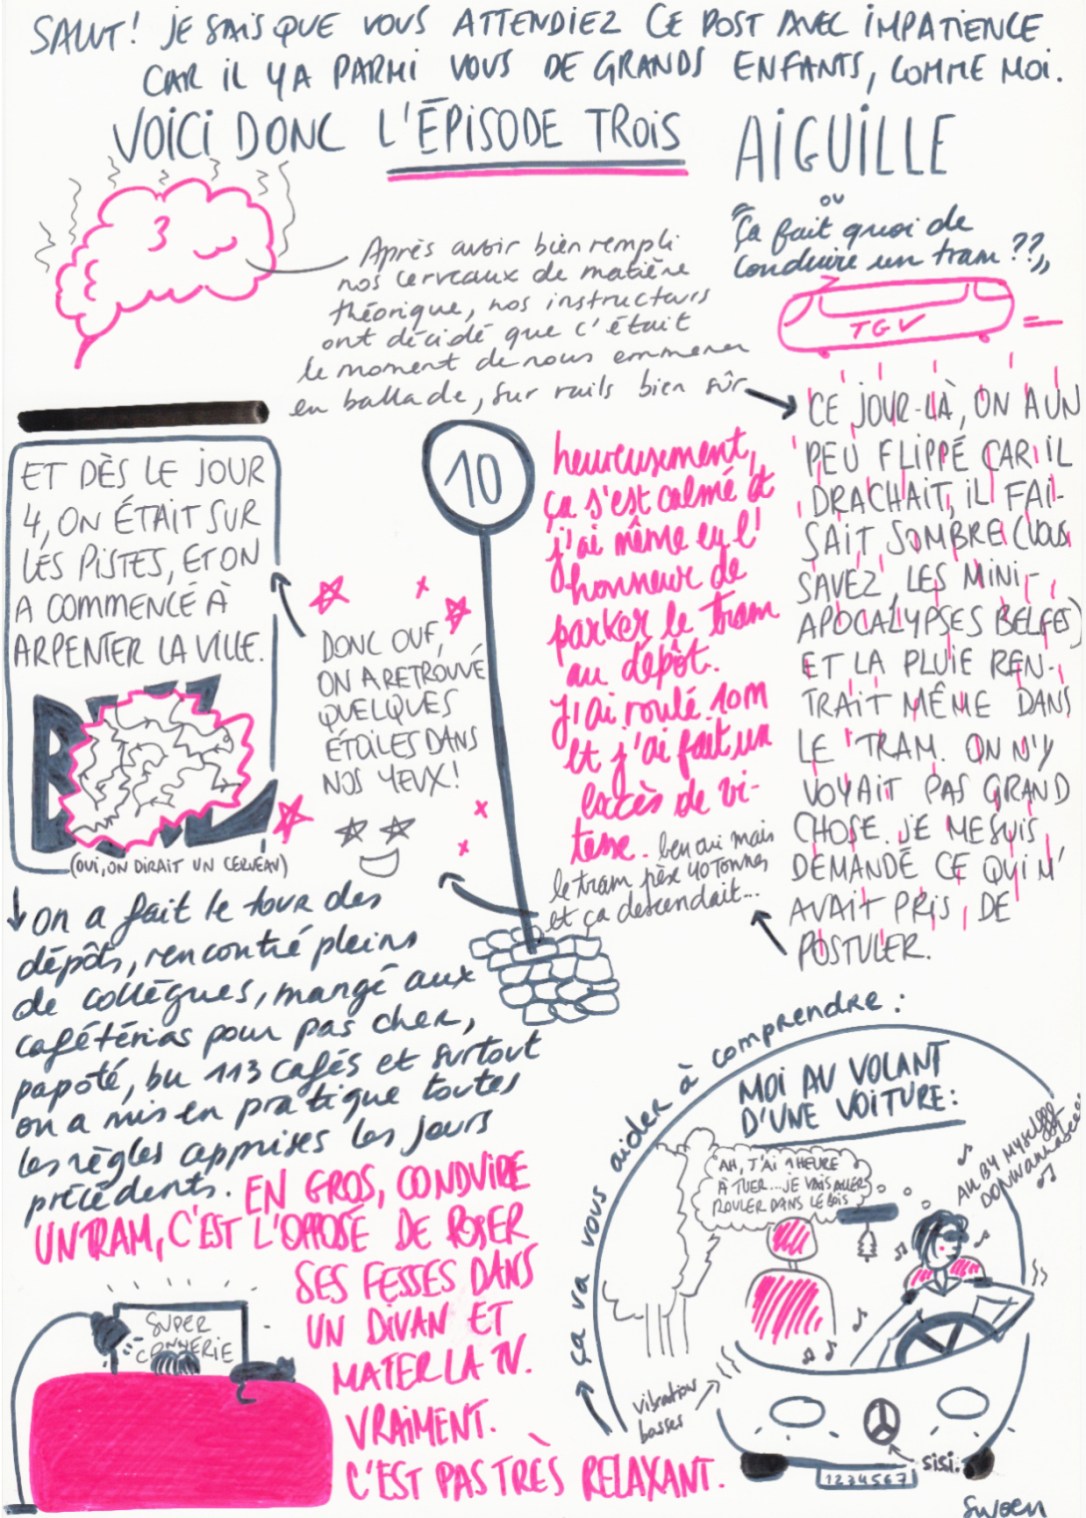 SALUT! JE SAIS QUE VOUS ATTENDIEZ CE POST AVEC IMPATIENCE
CAR IL Y A PARMI VOUS DE GRANDS ENFANTS, COMME MOI.
VOICI DONC L'ÉPISODE TROIS
AIGUILLE
OU
"Ça fait quoi de
conduire un tram ??"
TGV
3
Après avoir bien rempli
nos cerveaux de matière
théorique, nos instructeurs
ont décidé que c'était
le moment de nous emmener
en ballade, sur rails bien sûr
CE JOUR-LÀ, ON A UN
PEU FLIPPÉ CAR IL
DRACHAIT, IL FAI-
SAIT SOMBRE (VOUS
SAVEZ, LES MINI-
APOCALYPSES BELGES)
ET LA PLUIE REN-
TRAIT MÊME DANS
LE TRAM. ON N'Y
VOYAIT PAS GRAND
CHOSE. JE ME SUIS
DEMANDÉ CE QUI M'
AVAIT PRIS DE
POSTULER.
heureusement,
ça s'est calmé et
j'ai même eu l'
honneur de
parker le tram
au dépôt.
J'ai roulé 10m
et j'ai fait un
excès de vi-
tesse. ben oui mais
le tram pèse 40 tonnes
et ça descendait...
10
DONC OUF,
ON A RETROUVÉ
QUELQUES
ÉTOILES DANS
NOS YEUX!
ET DÈS LE JOUR
4, ON ÉTAIT SUR
LES PISTES, ET ON
A COMMENCÉ À
ARPENTER LA VILLE.
(OUI, ON DIRAIT UN CERVEAU)
On a fait le tour des
dépôts, rencontré pleins
de collègues, mangé aux
cafétérias pour pas cher,
papoté, bu 113 cafés et surtout
on a mis en pratique toutes
les règles apprises les jours
précédents. EN GROS, CONDUIRE
UN TRAM, C'EST L'OPPOSÉ DE POSER
SES FESSES DANS
UN DIVAN ET
MATER LA TV.
VRAIMENT.
C'EST PAS TRÈS RELAXANT.
SUPER
CONNERIE
ça va vous aider à comprendre :
MOI AU VOLANT
D'UNE VOITURE:
AH, J'AI 1 HEURE
À TUER... JE VAIS ALLER
ROULER DANS LE BOIS
ALL BY MYSELF
DONWANNABEE
vibrations
basses
sisi.
1234567
Swoen